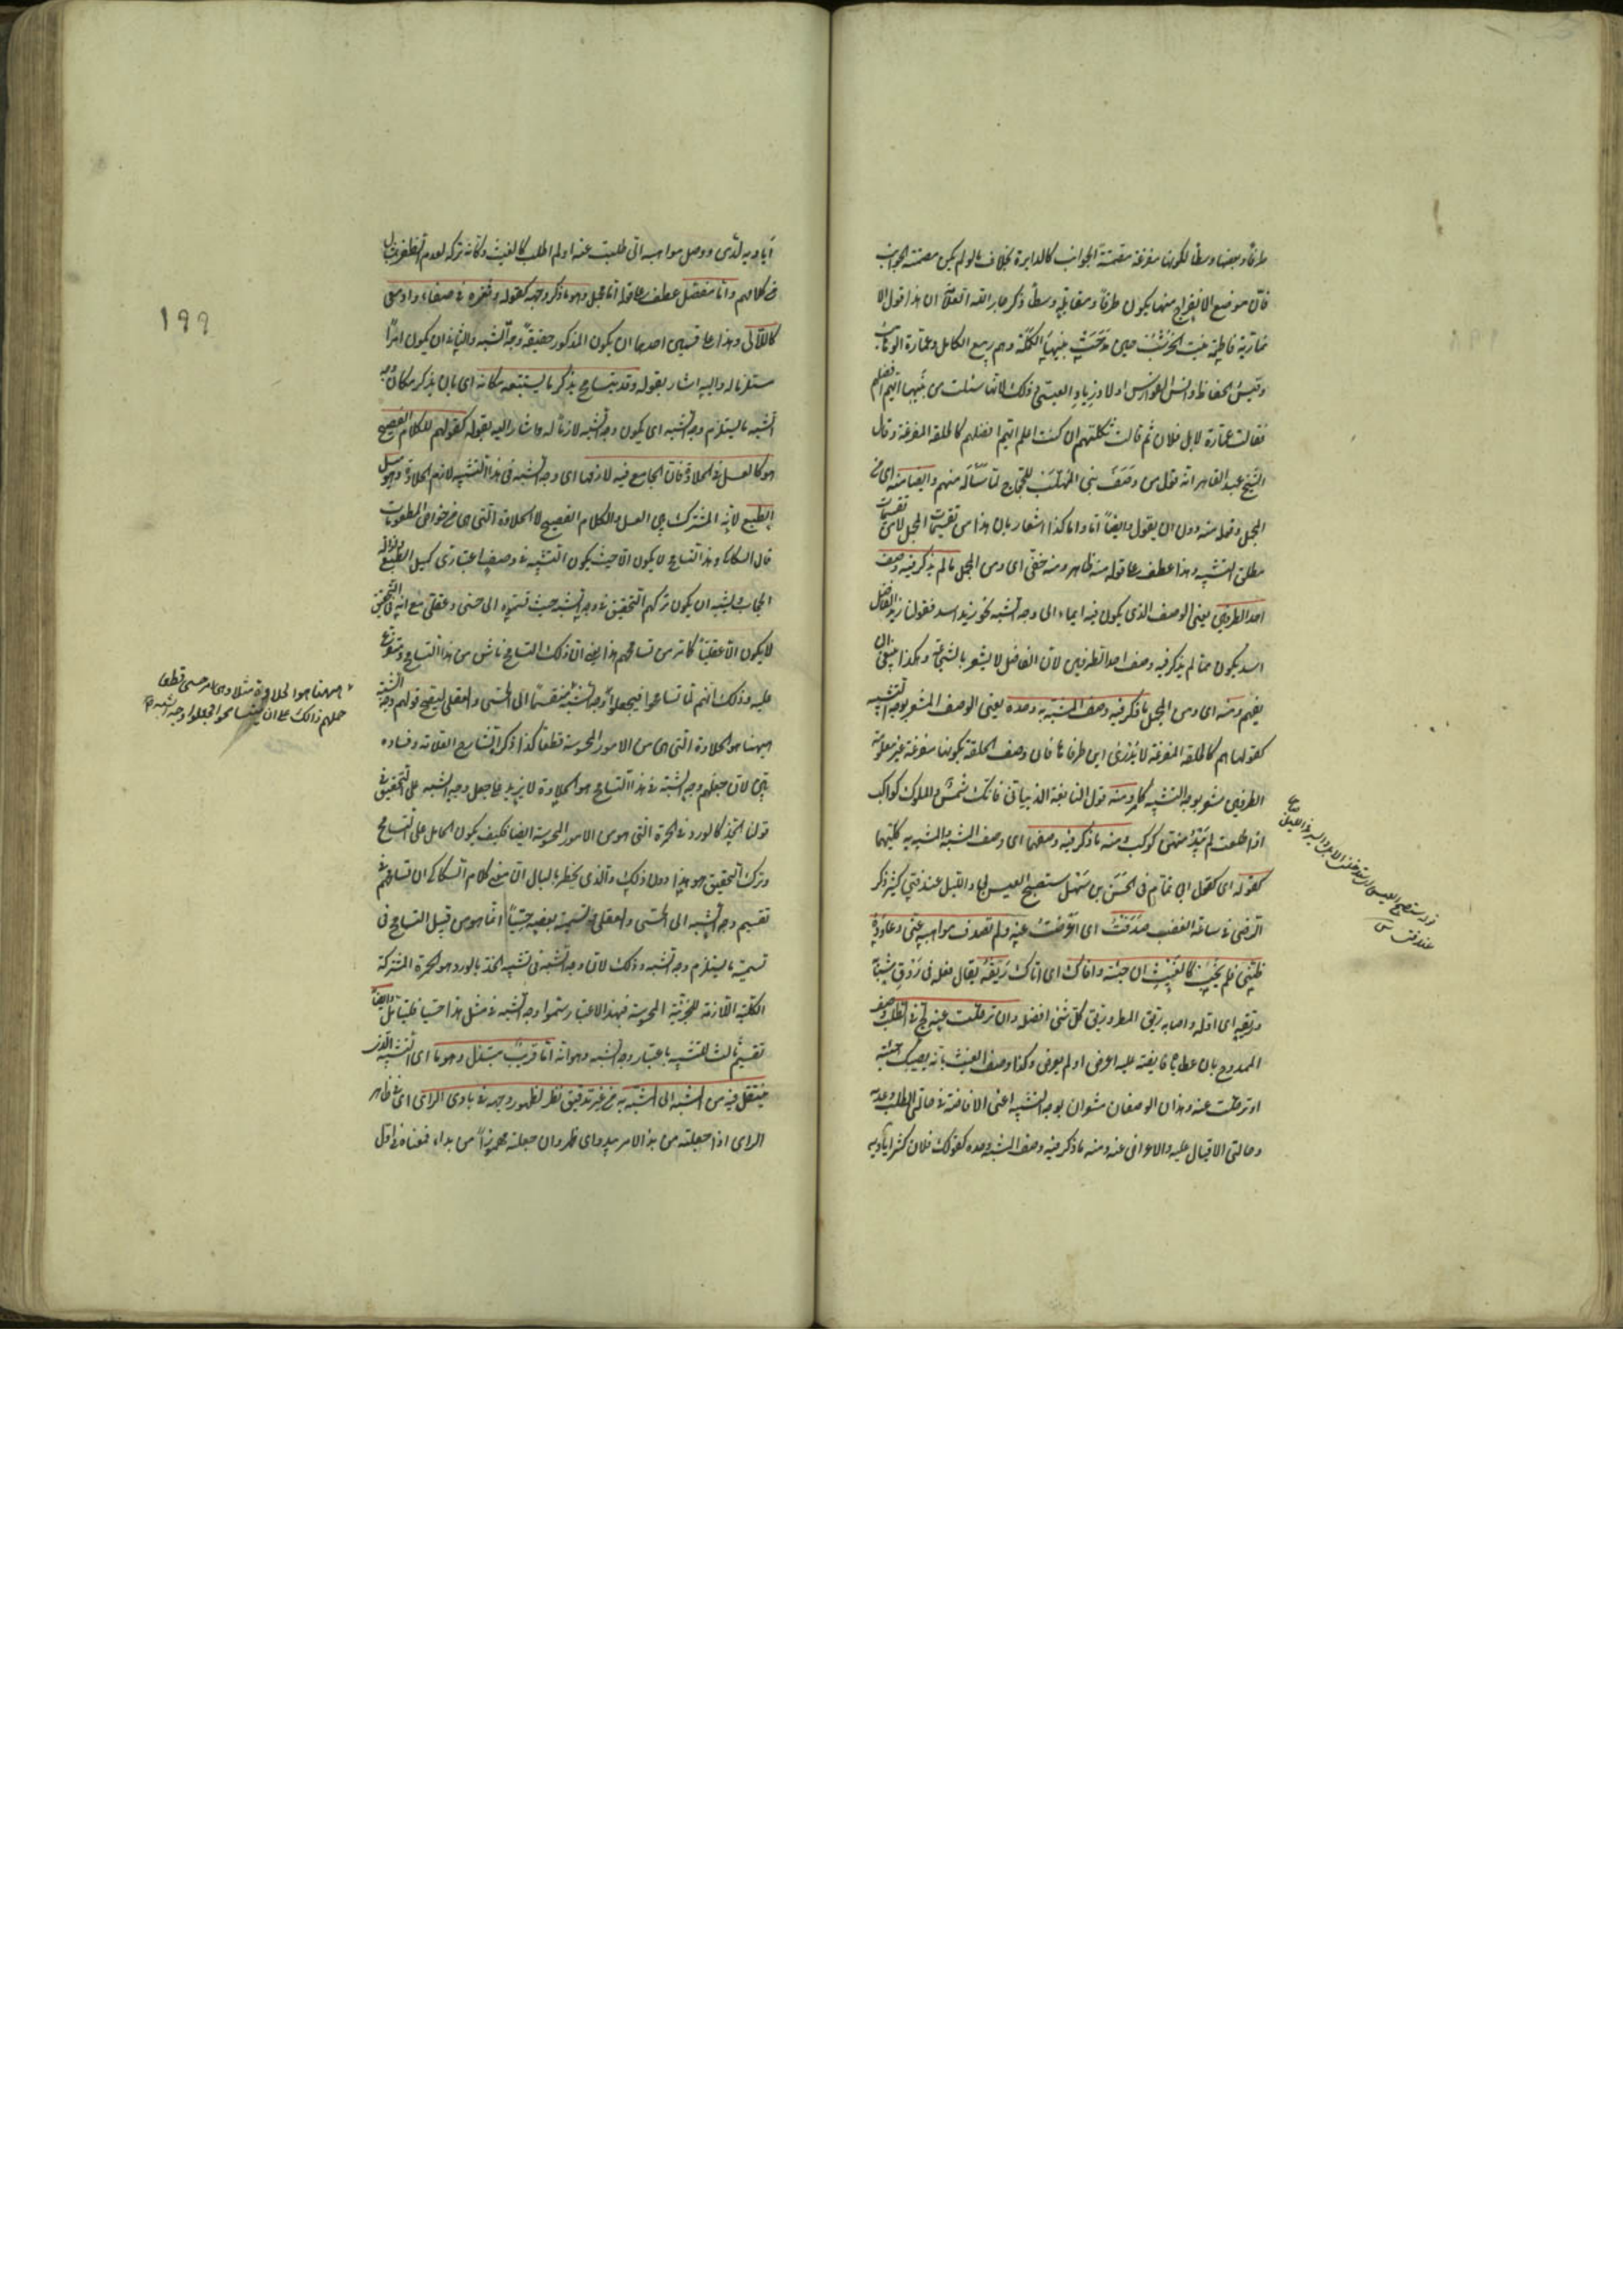 طرفا وبعضها وسطا لكونها مفرغة مصمتة الجوانب كالدايرة بخلاف ما لو لم يكن مصمتة الجوانب
فان موضع الانفراج منها يكون طرفا ومقابله وسطا ذكر جار الله العلامة ان هذا قول الا
نمارية فاطمة بنت الخرشب حين مدحت بنيها الكملة وهم ربيع الكامل وعمارة الوهاب
وقيس الحفاظ وانس الفوارس اولاد زياد العبسى وذلك لانها سئلت من بنيها ايهم افضل
فقالت عمارة لا بل فلان ثم قالت ثكلتهم ان كنت اعلم ايهم افضلهم كالحلقة المفرغة وقال
الشيخ عبد القاهر انه قول من وصف بنى المهلب للحجاج لما سأله عنهم وايضا منه اى من
المجمل وقوله منه دون ان يقول وايضا اما واما كذا اشعار بان هذا من تقسيمات المجمل لا من تقسيمات
مطلق التشبيه وهذا عطف على قوله منه ظاهر ومنه خفى اى ومن المجمل ما لم يذكر فيه وصف
احد الطرفين يعنى الوصف الذى يكون فيه ايماء الى وجه الشبه نحو زيد اسد فقولنا زيد الفاضل
اسد يكون مما لم يذكر فيه وصف احد الطرفين لان الفاضل لا يشعر بالشجاعة وهكذا ينبغى ان
يفهم ومنه اى ومن المجمل ما ذكر فيه وصف المشبه به وحده يعنى الوصف المشعر بوجه التشبيه
كقولها هم كالحلقة المفرغة لا يدرى اين طرفاها فان وصف الحلقة بكونها مفرغة غير معلومة
الطرفين مشعر بوجه التشبيه كما مر ومنه قول النابغة الذبيانى فانك شمس والملوك كواكب
اذا طلعت لم يبد منهن كوكب ومنه ما ذكر فيه وصفهما اى وصف المشبه والمشبه به كليهما
كقوله اى كقول ابى تمام فى الحسن بن سهل ستصبح العيس بى والليل عند فتى كثير ذكر
الرضى فى ساعة الغضب صدفت اى اعرضت عنه ولم تصدف مواهبه عنى وعاوده
ظنى فلم يخب كالغيث ان جئته وافاك اى اتاك ريقه يقال فعله فى روق شبابه
وريقه اى اوله واصابه ريق المطر وريق كل شئ افضله وان ترحلت عنه لج فى الطلب وصف
الممدوح بان عطاياه فايضة عليه اعرض او لم يعرض وكذا وصف الغيث بانه يصيبك جئته
او ترحلت عنه وهذان الوصفان مشعران بوجه التشبيه اعنى الافاضة فى حالتى الطلب وعدمه
وحالتى الاقبال عليه والاعراض عنه ومنه ما ذكر فيه وصف المشبه وحده كقولك فلان كثر اياديه
عند فتى
اياديه لدى ووصل مواهبه الى طلبت عنه او لم اطلب كالغيث وكانه تركه لعدم الظفر بمثال
فى كلامهم واما مفصل عطف على قوله اما مجمل وهو ما ذكر وجهه كقوله وثغره فى صفاء وادمعى
كاللآلى وهذا على قسمين احدهما ان يكون المذكور حقيقة وجه الشبه والثانى ان يكون امرا
مستلزما له واليه اشار بقوله وقد يتسامح بذكر ما يستتبعه مكانه اى بان يذكر مكان وجه
الشبه ما يستلزم وجه الشبه اى يكون وجه الشبه لازما له واشار اليه بقوله كقولهم للكلام الفصيح
هو كالعسل فى الحلاوة فان الجامع فيه لازمها اى وجه الشبه فى هذا التشبيه لازم الحلاوة وهو ميل
الطبع لانه المشترك بين العسل والكلام الفصيح لا الحلاوة التى هى من خواص المطعومات
قال السكاكى وهذا التسامح لا يكون الا حيث يكون التشبيه فى وصف اعتبارى كميل الطبع وازالة
الحجاب يشبه ان يكون تركهم التحقيق فى وجه الشبه حيث قسموه الى حسى وعقلى مع انه فى التحقيق
لا يكون الا عقليا كما مر من تسامحهم هذا يعنى ان ذلك التسامح ناش من هذا التسامح ومتفرع
عليه وذلك انهم لما تسامحوا فيجعلوا وجه الشبه منقسما الى الحسى والعقلى ليصح قولهم وجه الشبه
ههنا هو الحلاوة التى هى من الامور المحسوسة قطعا كذا ذكره الشارح العلامة وفساده
بين لان جعلهم وجه الشبه فى هذا التسامح هو الحلاوة لا يزيد على جعل وجه الشبه على التحقيق فى
قولنا الخد كالورد فى الحمرة التى هو من الامور المحسوسة ايضا فكيف يكون الحامل على التسامح
وترك التحقيق هو هذا دون ذلك والذى يخطر بالبال ان معنى كلام السكاكى ان تسامحهم فى
تقسيم وجه الشبه الى الحسى والعقلى وتسمية بعضه حسيا انما هو من قبيل التسامح فى
تسمية ما يستلزم وجه الشبه وذلك لان وجه الشبه فى تشبيه الخد بالورد هو الحمرة المشتركة
الكلية اللازمة للجزئية المحسوسة فبهذا الاعتبار سموا وجه الشبه فى مثل هذا حسيا فليتامل وايضا
تقسيم ثالث للتشبيه باعتبار وجه الشبه وهو انه اما قريب مبتذل وهو ما اى التشبيه الذى
ينتقل فيه من المشبه الى المشبه به من غير تدقيق نظر لظهور وجهه فى بادى الراى اى فى ظاهر
الراى اذا جعلته من بدا الامر يبدو اى ظهر وان جعلته مهموزا من بداء فمعناه فى اول
١٩٩
ههنا هو الحلاوة مثلا وهى امر حسى قطعا
حملهم ذلك على ان يتسامحوا